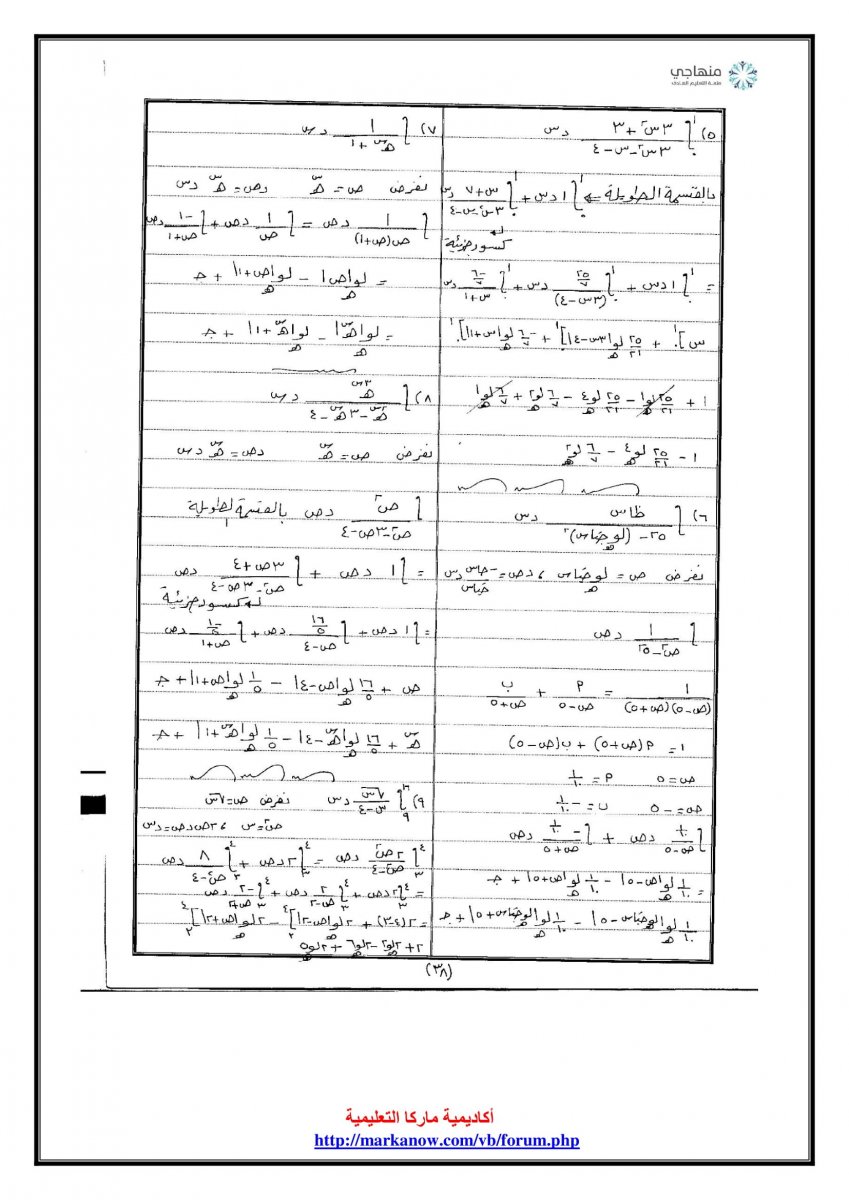 منهاجي
متعة التعليم الهادف
٥) ∫ (٣س² + ٣)/(٣س² − س − ٤) دس
بالقسمة الطويلة ← ∫ ١ دس + ∫ (س + ٧)/(٣س² − س − ٤) دس
كسور جزئية
= ∫ ١ دس + ∫ (٢٥/٧)/(٣س − ٤) دس + ∫ (−٦/٧)/(س + ١) دس
س] + ٢٥/٢١ لو|٣س − ٤|] + −٦/٧ لو|س + ١|]
١ + ٢٥/٢١ لو١ − ٢٥/٢١ لو٤ − ٦/٧ لو٢ + ٦/٧ لو١
١ − ٢٥/٢١ لو٤ − ٦/٧ لو٢
٦) ∫ ظاس/((لو جتاس)² − ٢٥) دس
نفرض ص = لو جتاس ، دص = −جاس/جتاس دس
∫ ١/(ص² − ٢٥) دص
١/((ص − ٥)(ص + ٥)) = P/(ص − ٥) + ب/(ص + ٥)
١ = P(ص + ٥) + ب(ص − ٥)
ص = ٥ P = ١/١٠
ص = −٥ ب = −١/١٠
∫ (١/١٠)/(ص − ٥) دص + ∫ (−١/١٠)/(ص + ٥) دص
= ١/١٠ لو|ص − ٥| − ١/١٠ لو|ص + ٥| + جـ
١/١٠ لو|لو جتاس − ٥| − ١/١٠ لو|لو جتاس + ٥| + جـ
٧) ∫ ١/(هـ^س + ١) دس
نفرض ص = هـ^س دص = هـ^س دس
∫ ١/(ص(ص + ١)) دص = ∫ ١/ص دص + ∫ −١/(ص + ١) دص
= لو|ص| − لو|ص + ١| + جـ
= لو|هـ^س| − لو|هـ^س + ١| + جـ
٨) ∫ هـ^٣س/(هـ^٢س − ٣هـ^س − ٤) دس
نفرض ص = هـ^س دص = هـ^س دس
∫ ص²/(ص² − ٣ص − ٤) دص بالقسمة الطويلة
= ∫ ١ دص + ∫ (٣ص + ٤)/(ص² − ٣ص − ٤) دص
كسور جزئية
= ∫ ١ دص + ∫ (١٦/٥)/(ص − ٤) دص + ∫ (−١/٥)/(ص + ١) دص
ص + ١٦/٥ لو|ص − ٤| − ١/٥ لو|ص + ١| + جـ
هـ^س + ١٦/٥ لو|هـ^س − ٤| − ١/٥ لو|هـ^س + ١| + جـ
٩) ∫ √س/(س − ٤) دس نفرض ص = √س
ص² = س ، ٢ص دص = دس
∫ ٢ص²/(ص² − ٤) دص = ∫ ٢ دص + ∫ ٨/(ص² − ٤) دص
= ∫ ٢ دص + ∫ ٢/(ص − ٢) دص + ∫ −٢/(ص + ٢) دص
= ٢(٤ − ٣) + ٢لو|ص − ٢|] − ٢لو|ص + ٢|]
٢ + ٢لو٢ − ٢لو٦ + ٢لو٥
(٣٨)
أكاديمية ماركا التعليمية
http://markanow.com/vb/forum.php